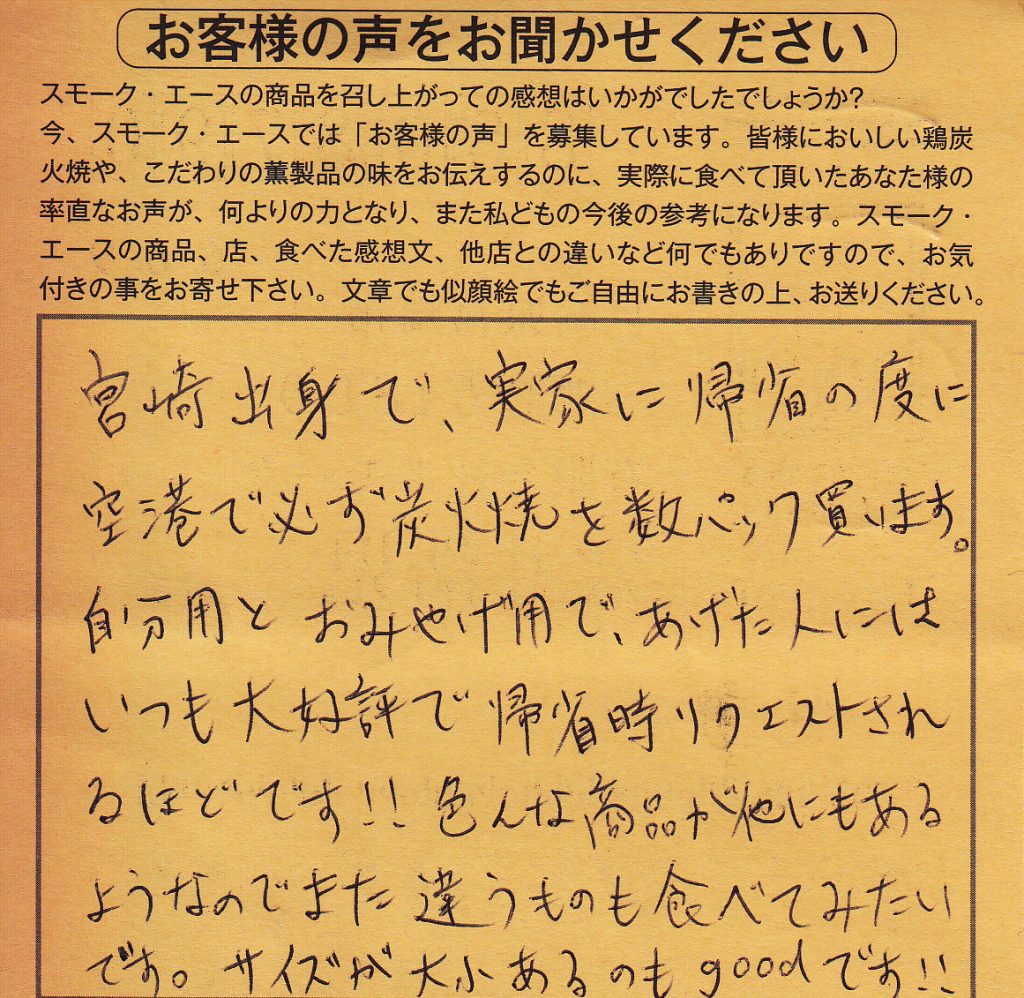 お客様の声をお聞かせください
スモーク・エースの商品を召し上がっての感想はいかがでしたでしょうか?
今、スモーク・エースでは「お客様の声」を募集しています。皆様においしい鶏炭
火焼や、こだわりの薫製品の味をお伝えするのに、実際に食べて頂いたあなた様の
率直なお声が、何よりの力となり、また私どもの今後の参考になります。スモーク・
エースの商品、店、食べた感想文、他店との違いなど何でもありですので、お気
付きの事をお寄せ下さい。文章でも似顔絵でもご自由にお書きの上、お送りください。
宮崎出身で、実家に帰省の度に
空港で必ず炭火焼を数パック買います。
自分用とおみやげ用で、あげた人には
いつも大好評で帰省時リクエストされ
るほどです!! 色んな商品が他にもある
ようなのでまた違うものも食べてみたい
です。サイズが大小あるのもgoodです!!